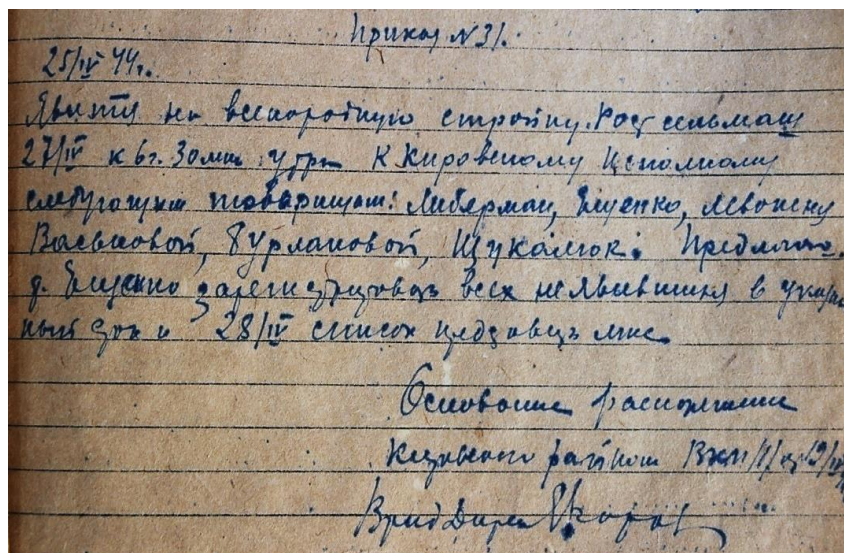 Приказ N 31.
25/IV 44г.
Явится на всенородную стройку. Ростсельмаш
27/IV к 6г. 30мин утра к Кировскому Исполкому
следующим товарищам: Либерман, Ещенко, Левокину
Васьковой, Бурлаковой, Щукалюк. Предлага.
д. Ещенко зарегистрировать всех неявившихся в указан
ный срок и 28/IV список передовать мне.
Основание распоряжение
Кировского райкома ВКП/б/
Врид Дирек